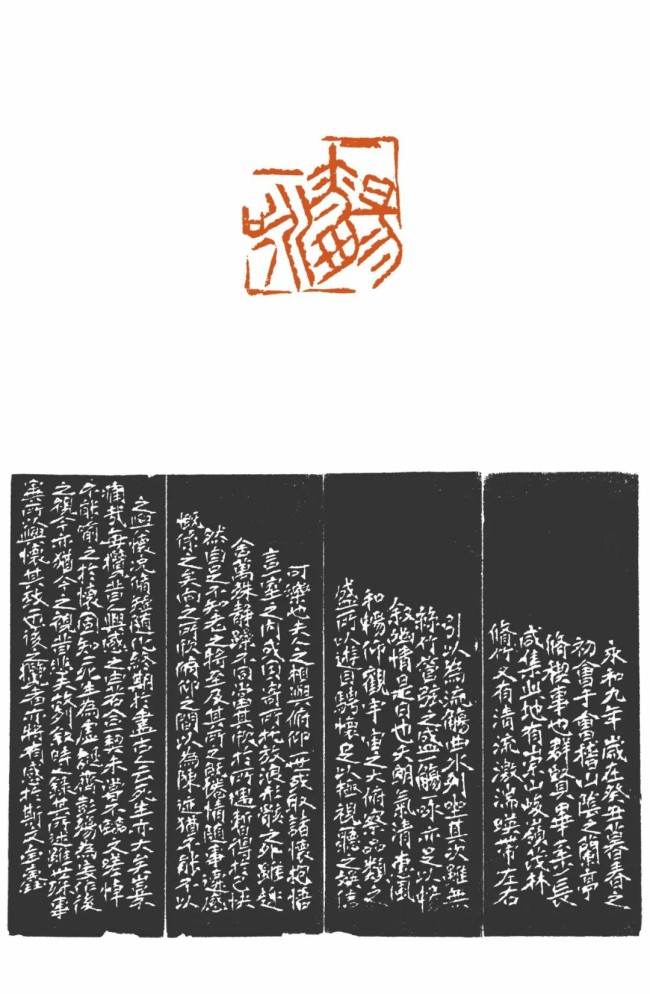 永和九年歲在癸丑暮春之
初會于會稽山陰之蘭亭
脩稧事也群賢畢至少長
咸集此地有崇山峻領茂林
脩竹又有清流激湍暎帶左右
引以為流觴曲水列坐其次雖無
絲竹管弦之盛一觴一詠亦足以暢
敘幽情是日也天朗氣清惠風
和暢仰觀宇宙之大俯察品類之
盛所以遊目騁懷足以極視聽之娛信
可樂也夫人之相與俯仰一世或取諸懷抱悟
言一室之內或因寄所託放浪形骸之外雖趣
舍萬殊靜躁不同當其欣於所遇暫得於己快
然自足不知老之將至及其所之既惓情隨事遷感
慨係之矣向之所欣俛仰之間以為陳迹猶不能不以
之興懷況脩短隨化終期於盡古人云死生亦大矣豈不
痛哉每攬昔人興感之由若合一契未嘗不臨文嗟悼
不能喻之於懷固知一死生為虛誕齊彭殤為妄作後
之視今亦猶今之視昔悲夫故列敘時人錄其所述雖世殊事
異所以興懷其致一也後之攬者亦將有感於斯文